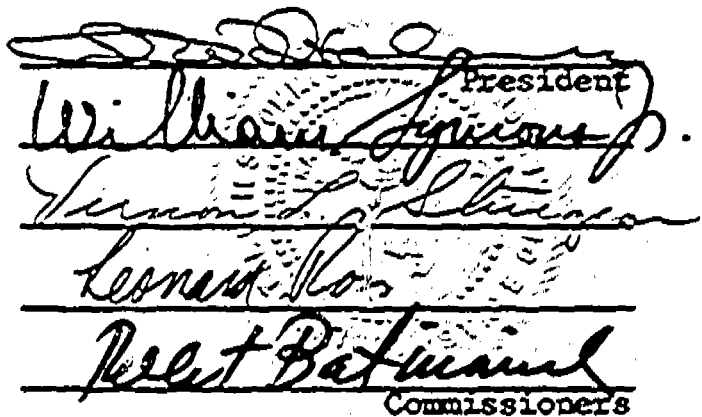 President
William Symons Jr.
Vernon L. Sturgeon
Leonard Ross
Robert Batinovich
Commissioners